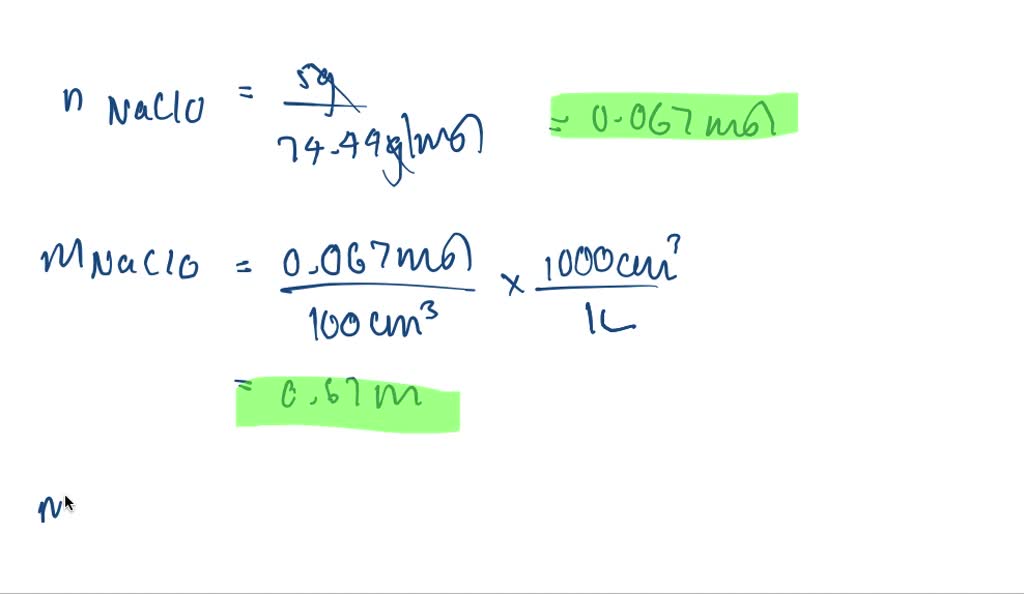 n NaClO = 5g / 74.44g/mol = 0.067 mol
M NaClO = 0.067 mol / 100 cm³ × 1000 cm³ / 1L
= 0.67 M
n